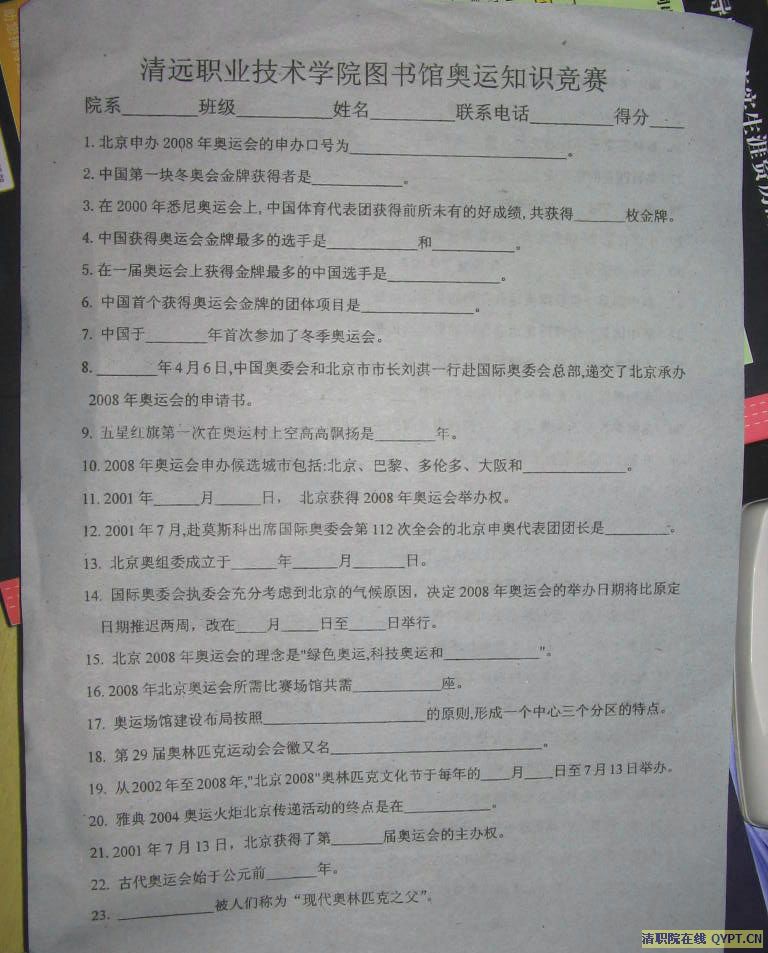 清远职业技术学院图书馆奥运知识竞赛
院系________班级__________姓名_________联系电话_________得分____
1. 北京申办 2008 年奥运会的申办口号为__________________________。
2. 中国第一块冬奥会金牌获得者是___________。
3. 在 2000 年悉尼奥运会上, 中国体育代表团获得前所未有的好成绩, 共获得______枚金牌。
4. 中国获得奥运会金牌最多的选手是___________和__________。
5. 在一届奥运会上获得金牌最多的中国选手是_____________。
6. 中国首个获得奥运会金牌的团体项目是_____________。
7. 中国于_______年首次参加了冬季奥运会。
8. _______年4月6日,中国奥委会和北京市市长刘淇一行赴国际奥委会总部,递交了北京承办
2008 年奥运会的申请书。
9. 五星红旗第一次在奥运村上空高高飘扬是_______年。
10. 2008 年奥运会申办候选城市包括:北京、巴黎、多伦多、大阪和____________。
11. 2001 年_____月_____日, 北京获得 2008 年奥运会举办权。
12. 2001 年 7 月,赴莫斯科出席国际奥委会第 112 次全会的北京申奥代表团团长是_______。
13. 北京奥组委成立于_____年_____月______日。
14. 国际奥委会执委会充分考虑到北京的气候原因，决定 2008 年奥运会的举办日期将比原定
日期推迟两周，改在___月____日至____日举行。
15. 北京 2008 年奥运会的理念是"绿色奥运,科技奥运和___________"。
16. 2008 年北京奥运会所需比赛场馆共需__________座。
17. 奥运场馆建设布局按照___________________的原则,形成一个中心三个分区的特点。
18. 第 29 届奥林匹克运动会会徽又名_________________________。
19. 从2002年至2008年,"北京2008"奥林匹克文化节于每年的___月___日至7月13日举办。
20. 雅典 2004 奥运火炬北京传递活动的终点是在__________。
21. 2001 年 7 月 13 日，北京获得了第______届奥运会的主办权。
22. 古代奥运会始于公元前______年。
23. ___________被人们称为“现代奥林匹克之父”。
清职院在线 QYPT.CN